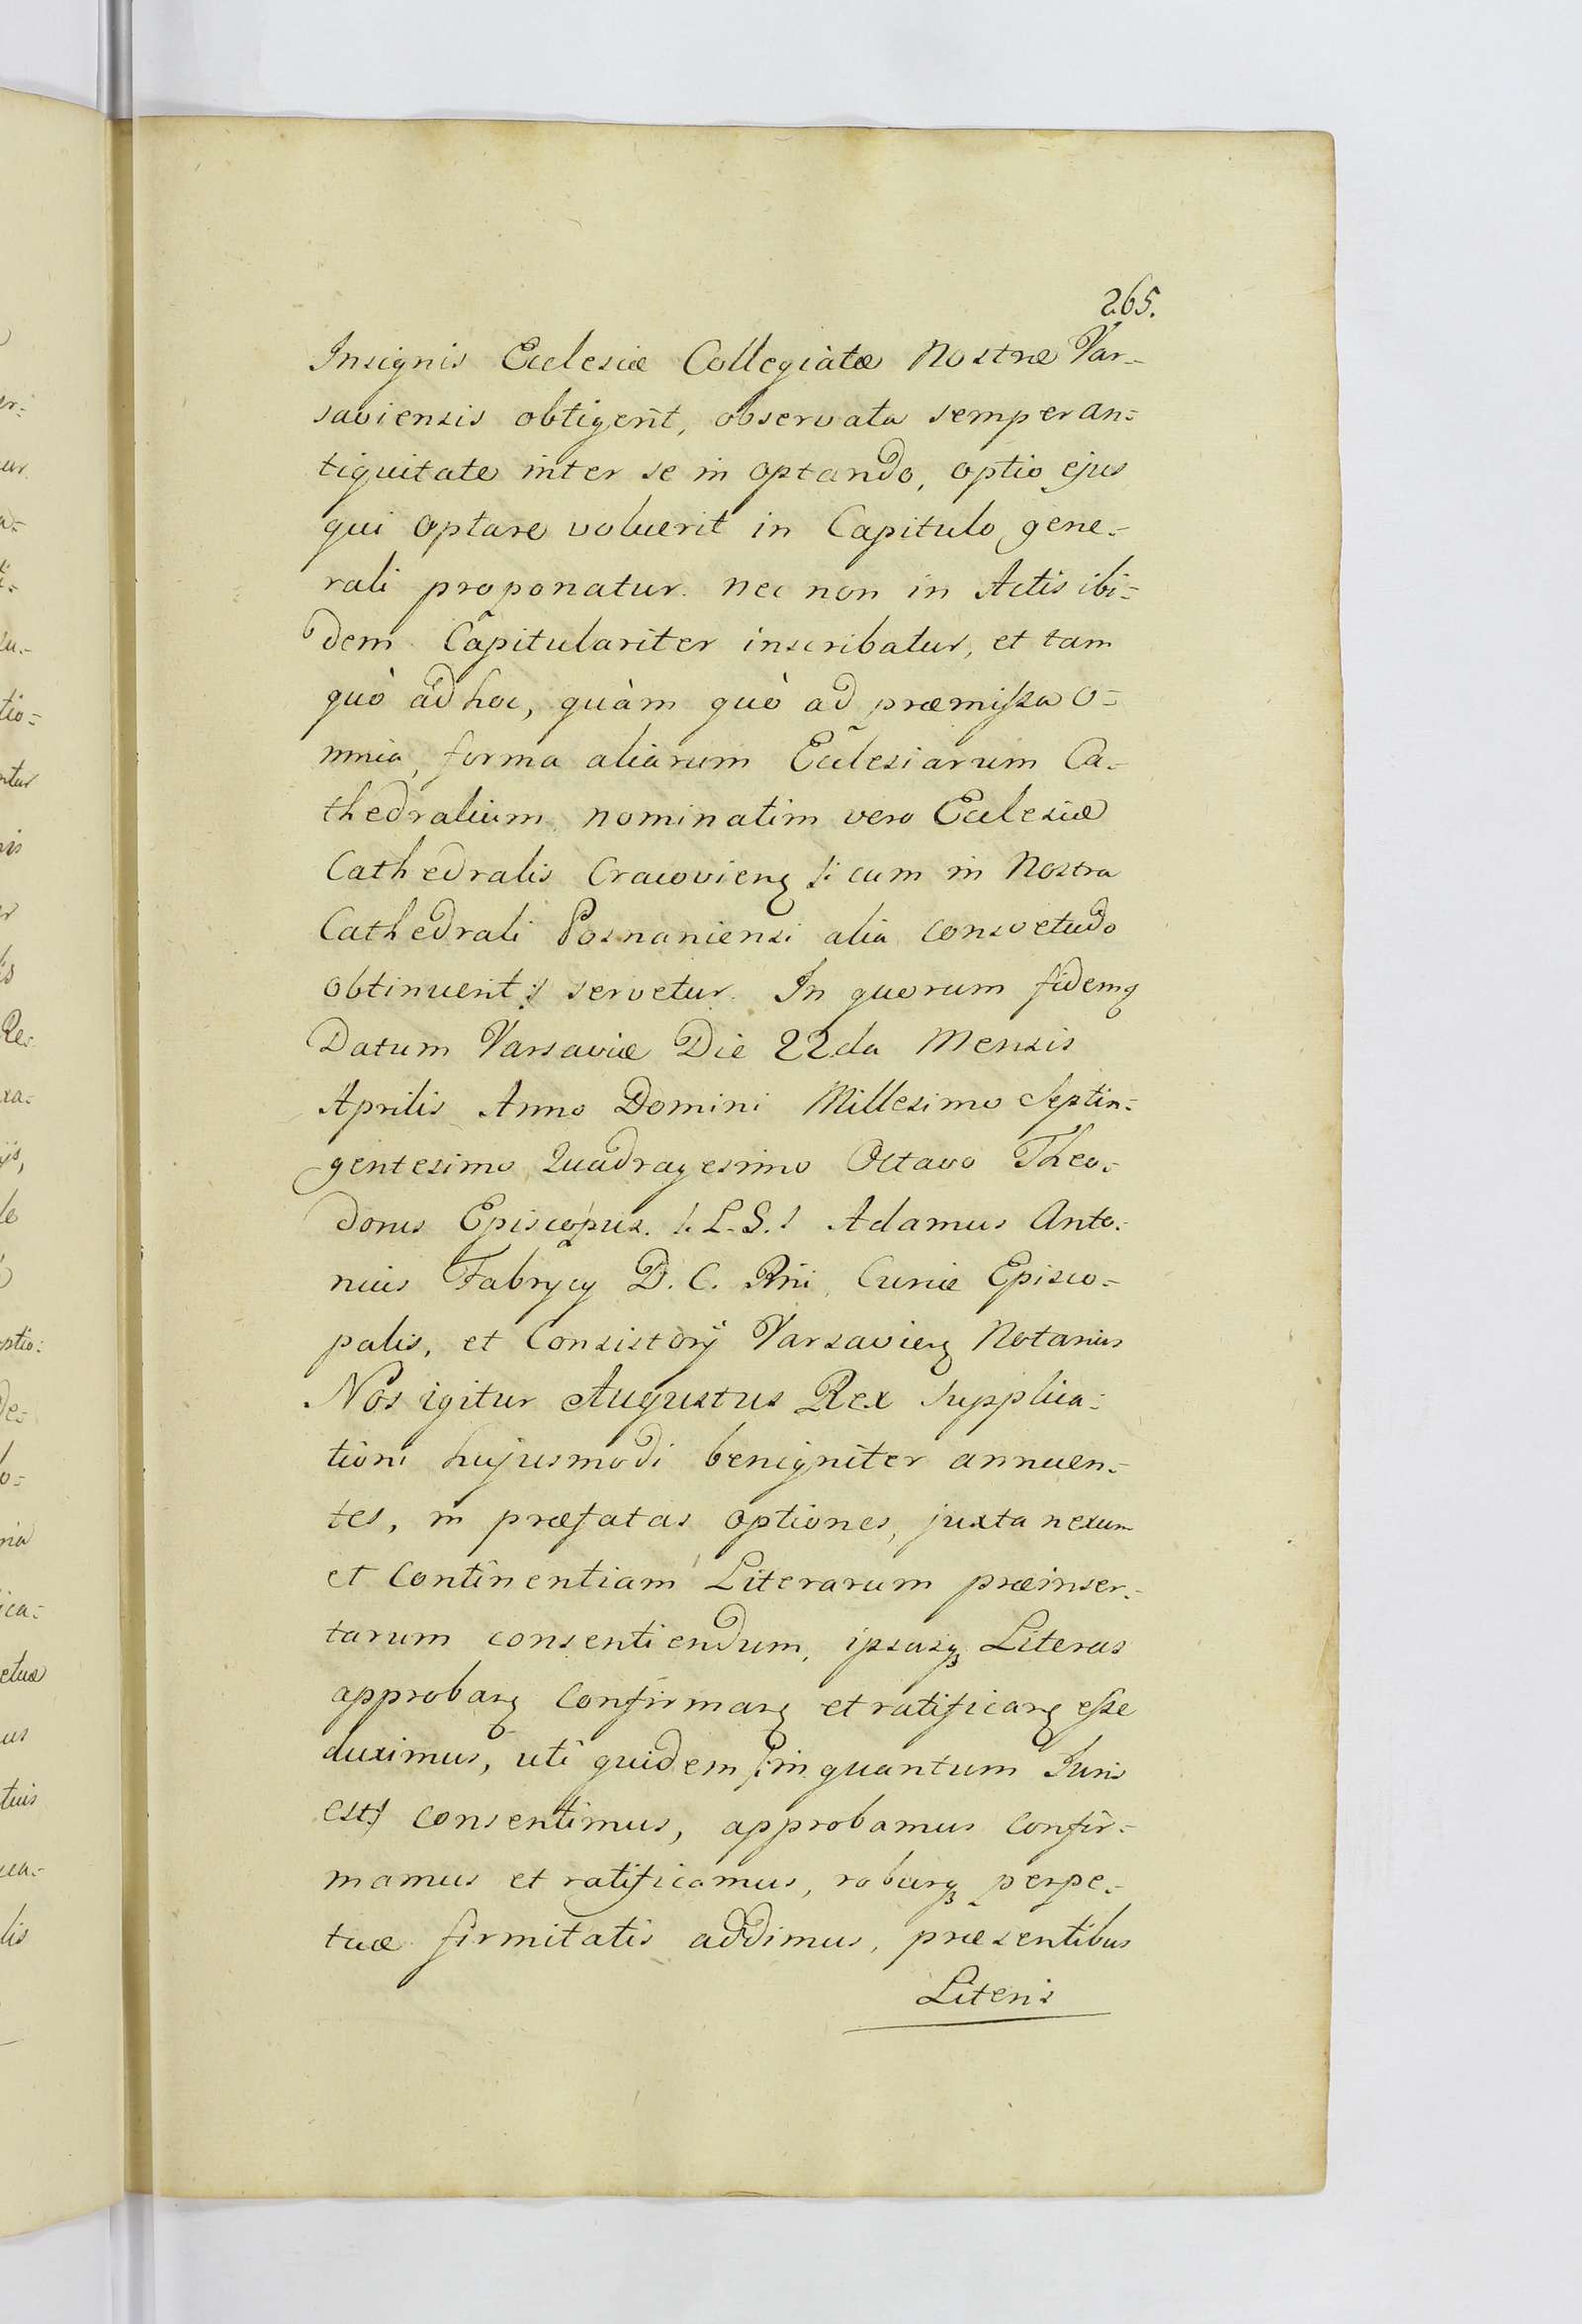 265.
Insignis Ecclesiæ Collegiatæ Nostræ Var-
saviensis obtigerit, observata semper an=
tiquitate inter se in optando, optio ejus
qui optare voluerit in Capitulo gene=
rali proponatur. nec non in Actis ibi=
dem Capitulariter inscribatur, et tam
quò ad hoc, quàm quò ad præmissa o=
mnia, forma aliarum Ecclesiarum Ca=
thedralium, nominatim vero Ecclesiæ
Cathedralis Cracovienꝫ /: cum in Nostra
Cathedrali Posnaniensi alia consvetudo
obtinuerit :/ servetur. In quorum fidemꝫ
Datum Varsaviæ Die 22da Mensis
Aprilis Anno Domini Millesimo Septin=
gentesimo Quadragesimo Octavo Theo=
dorus Episcopus. /: L. S. :/ Adamus Anto=
nius Fabrycy D. C. Rñi, Curiæ Episco=
palis, et Consistorÿ Varsavienꝫ Notarius
Nos igitur Augustus Rex Supplica=
tioni hujusmodi benigniter annuen=
tes, in præfatas optiones, juxta nexum
et Continentiam Literarum præinser=
tarum consentiendum, ipsasqꝫ Literas
approbanꝫ Confirmanꝫ et ratificanꝫ esse
duximus, uti quidem /: in quantum Juris
est :/ consentimus, approbamus confir=
mamus et ratificamus, roburqꝫ perpe=
tuæ firmitatis addimus, præsentibus
Literis